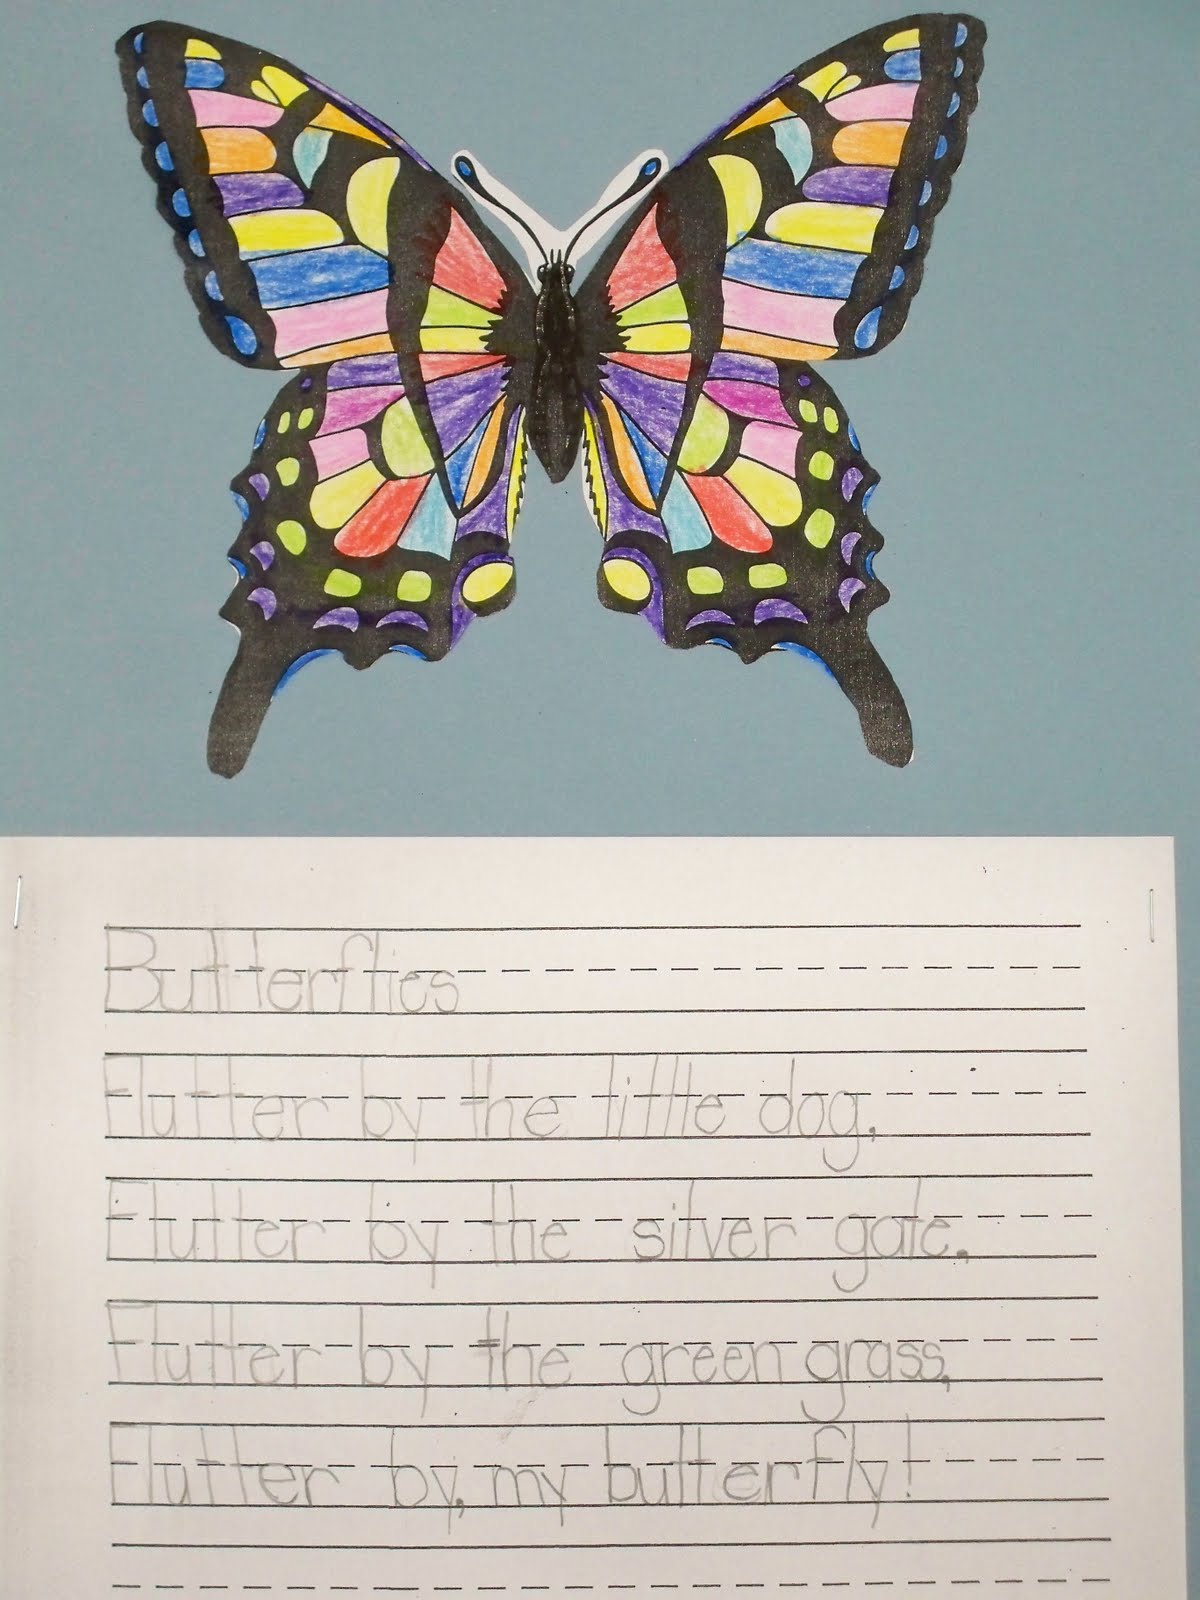 Butterflies
Flutter by the little dog,
Flutter by the silver gate,
Flutter by the green grass,
Flutter by, my butterfly!